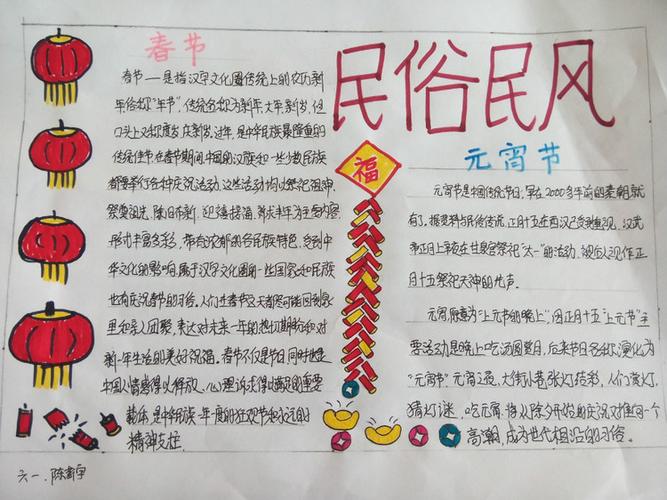 春节
民俗民风
春节——是指汉字文化圈传统上的农历新
年俗称“年节”,传统名称为新年、大年、新岁,但
口头上又称度岁、庆新岁、过年,是中华民族最隆重的
传统佳节在春节期间中国的汉族和一些少数民族
都要举行各种庆祝活动。这些活动均以祭祀祖神、
祭奠祖先、除旧布新、迎禧接福、祈求丰年为主要内容,
形式丰富多彩,带有浓郁的各民族特色,受到中
华文化的影响,属于汉字文化圈的一些国家和民族
也有庆祝春节的习俗。人们在春节这天都尽可能回到家
里和亲人团聚,表达对未来一年的热切期盼和对
新一年生活的美好祝福。春节不仅是节日同时也是
中国人情感得以释放、心理诉求得以满足的重要
载体,是中华民族一年度的狂欢节和永远的
精神支柱
福
元宵节
元宵节是中国传统节日,早在2000多年前的秦朝就
有了,据资料与民俗传说,正月十五在西汉已受到重视,汉武
帝正月上辛夜在甘泉宫祭祀“太一”的活动,被后人视作正
月十五祭祀天神的先声。
元宵原意为“上元节的晚上”,因正月十五“上元节”主
要活动是晚上吃汤圆赏月,后来节日名称演化为
“元宵节”元宵之夜,大街小巷张灯结彩,人们赏灯,
猜灯谜,吃元宵,将从除夕开始的庆祝又推向一个
高潮,成为世代相沿的习俗。
六一、陈